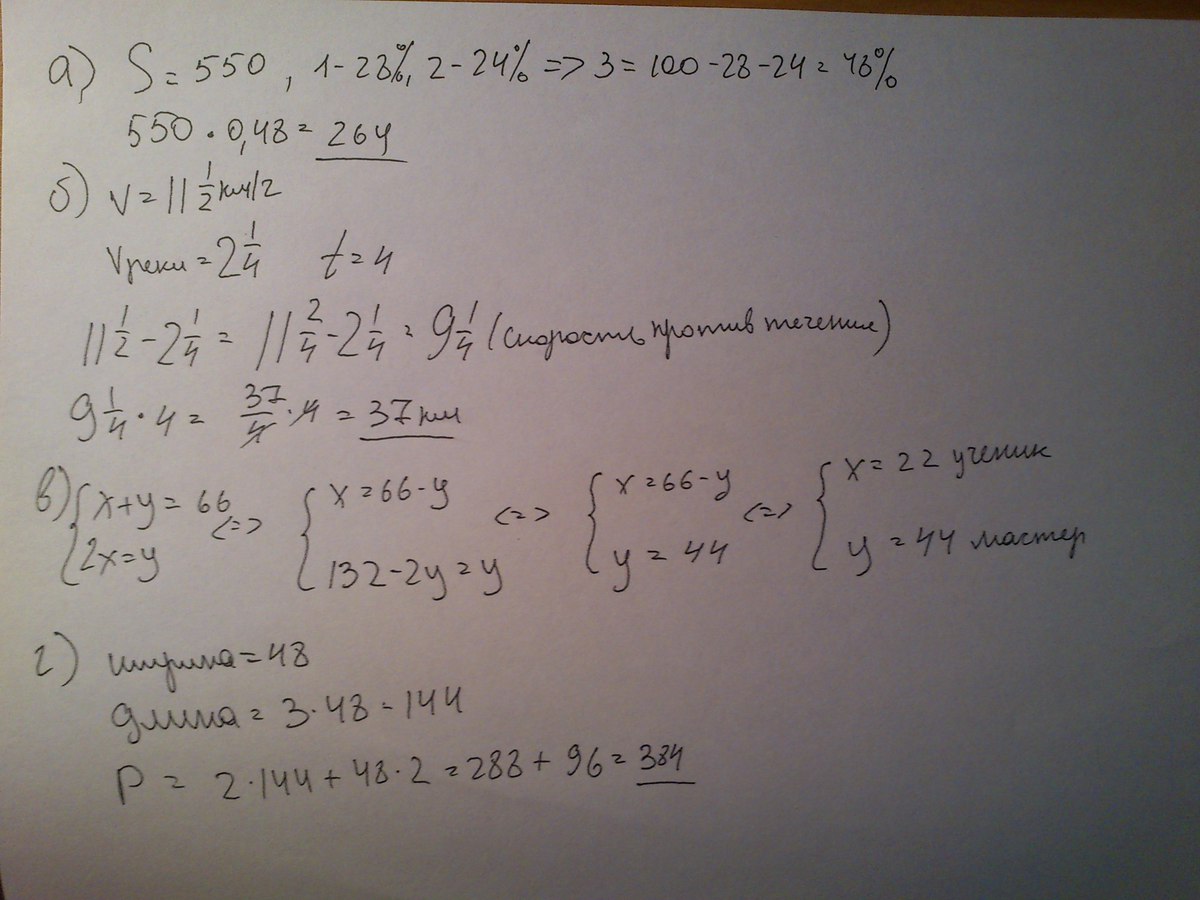 а) S = 550, 1 - 28%, 2 - 24% => 3 = 100 - 28 - 24 = 48%
550 · 0,48 = 264
б) V = 11 1/2 км/г
Vреки = 2 1/4 t = 4
11 1/2 - 2 1/4 = 11 2/4 - 2 1/4 = 9 1/4 (скорость против течения)
9 1/4 · 4 = 37/4 · 4 = 37 км
в) { x + y = 66 <=> { x = 66 - y <=> { x = 66 - y <=> { x = 22 ученик
2x = y 132 - 2y = y y = 44 y = 44 мастер
г) ширина = 48
длина = 3 · 48 = 144
P = 2 · 144 + 48 · 2 = 288 + 96 = 384